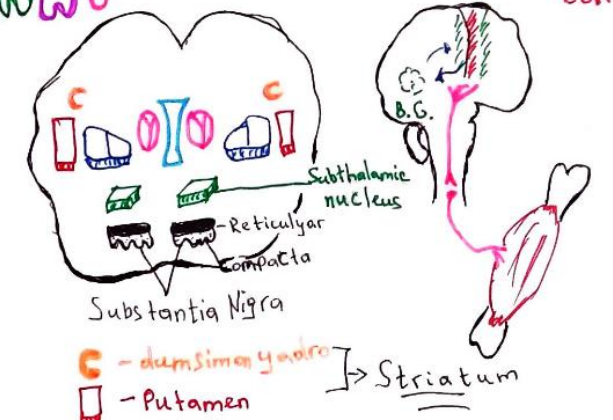 C C
B.G.
Subthalamic
nucleus
Reticulyar
Compacta
Substantia Nigra
C - dumsimon yadro
- Putamen
Striatum